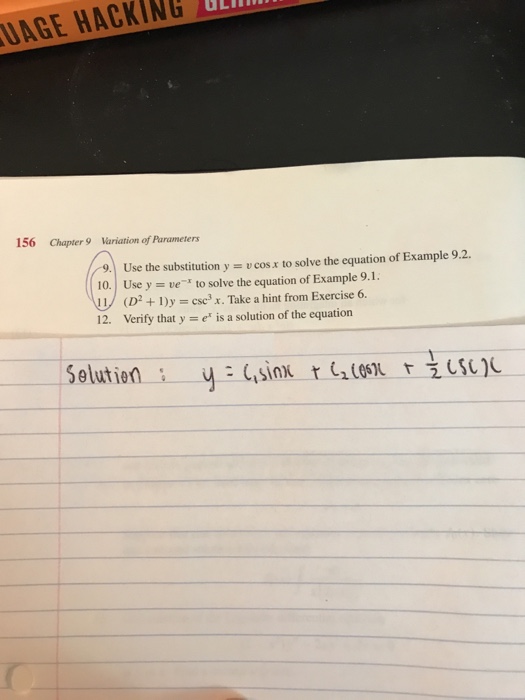 UAGE HACKING
156 Chapter 9 Variation of Parameters
9. Use the substitution y = v cos x to solve the equation of Example 9.2.
10. Use y = ve⁻ˣ to solve the equation of Example 9.1.
11. (D² + 1)y = csc³ x. Take a hint from Exercise 6.
12. Verify that y = eˣ is a solution of the equation
Solution : y = C₁sinx + C₂cosx + 1/2 cscx